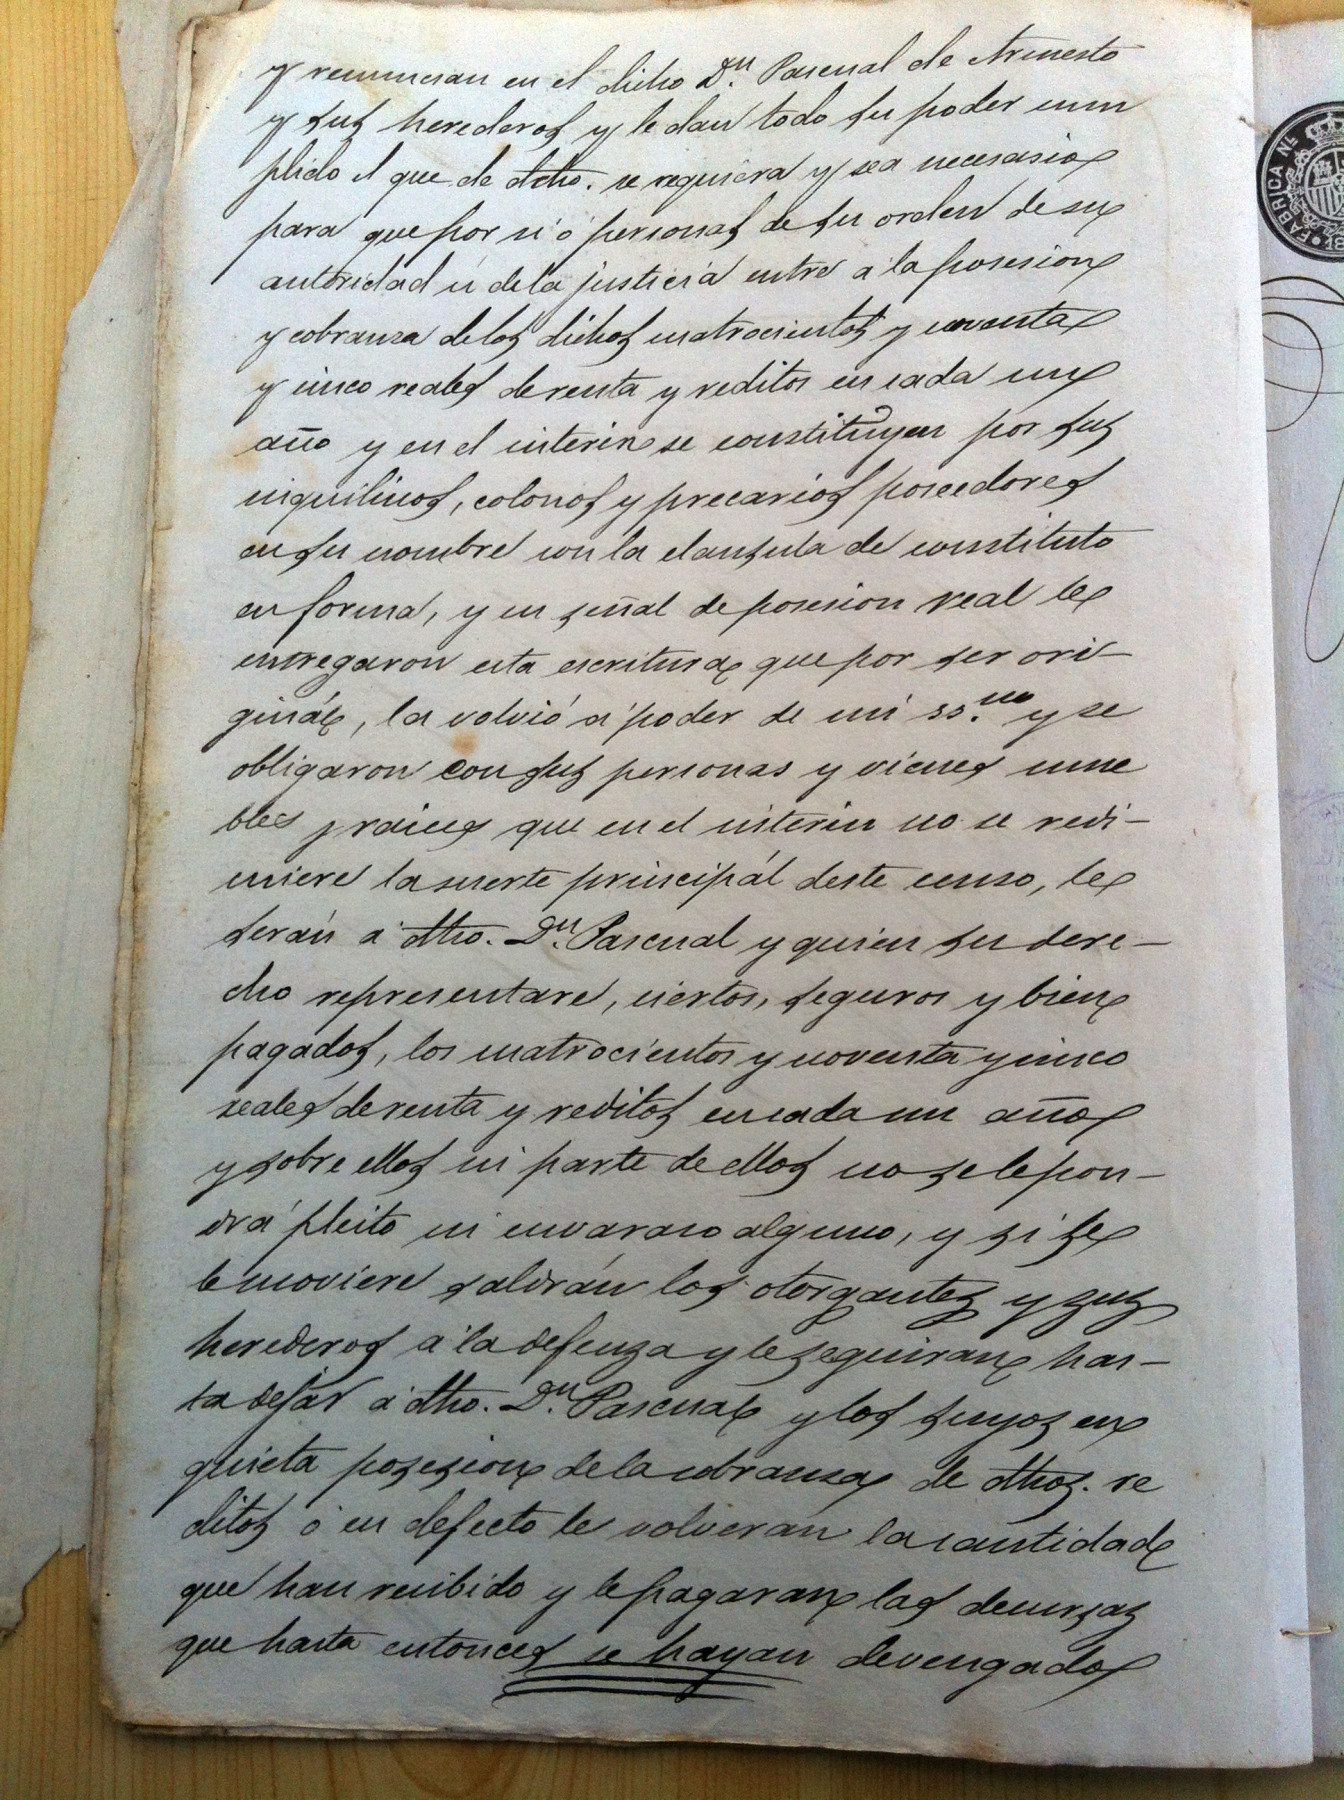 y renuncian en el dicho Dn. Pascual de Armesto
y sus herederos y le dan todo su poder cum
plido el que de dcho. se requiera y sea necesario
para que por si ó personas de su orden de su
autoridad ú de la justicia entre á la posesion
y cobranza de los dichos cuatrocientos y noventa
y cinco reales de renta y reditos en cada un
año y en el interin se constituyen por sus
inquilinos, colonos y precarios poseedores
en su nombre con la clausula de constituto
en forma, y en señal de posesion real le
entregaron esta escritura que por ser ori-
ginál, la volvió á poder de mi ssno. y se
obligaron con sus personas y vienes mue
bles y raices que en el interin no se redi-
miere la suerte principál deste censo, le
serán á dho. Dn. Pascual y quien su dere-
cho representare, ciertos, seguros y bien
pagados, los cuatrocientos y noventa y cinco
reales de renta y reditos en cada un año
y sobre ellos ni parte de ellos no se le pon-
drá pleito ni envarazo alguno, y si se
le moviere saldrán los otorgantes y sus
herederos á la defenza y le seguiran has-
ta dejar á dho. Dn. Pascual y los suyos en
quieta posesion de la cobranza de dhos. re
ditos ó en defecto le volveran la cantidad
que han recibido y le pagaran las decursas
que hasta entonces se hayan devengado
FABRICA NL